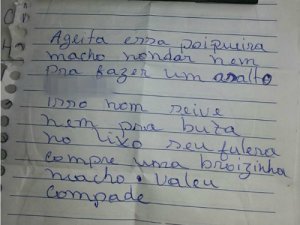 Ageita essa poipueira
macho nondar nem
pra fazer um asalto
Isso nom seive
nem pra buta
no lixo seu fulera
compre uma broizinha
macho. Valeu
Compade